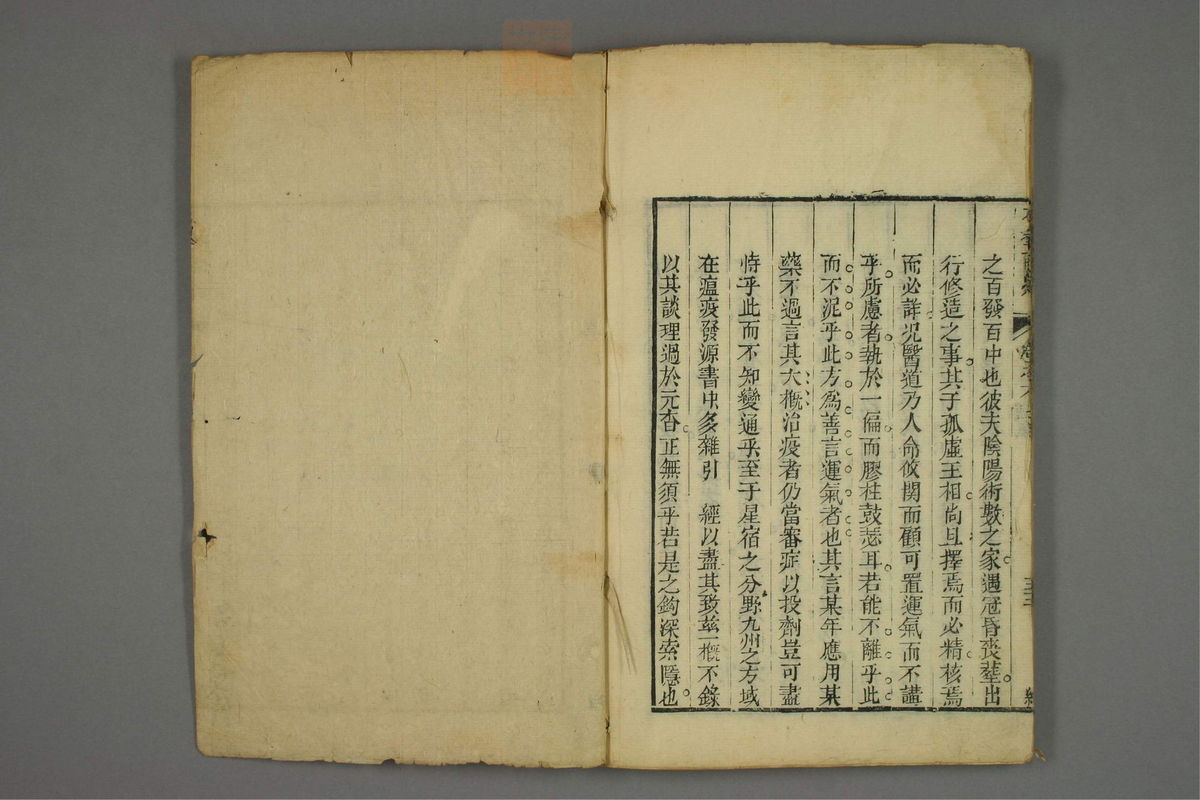 之百發百中也彼夫陰陽術數之家遇冠昏喪塟出
行修造之事其于孤虛王相尚且擇焉而必精核焉
而必詳况醫道乃人命攸関而顧可置運氣而不講
乎所慮者執於一偏而膠柱鼓瑟耳若能不離乎此
而不泥乎此方為善言運氣者也其言某年應用某
藥不過言其大概治疫者仍當審症以投劑豈可盡
恃乎此而不知變通乎至于星宿之分野九州之方域
在瘟疫發源書中多雜引　經以盡其致茲一概不錄
以其談理過於元杳正無須乎若是之鈎深索隱也